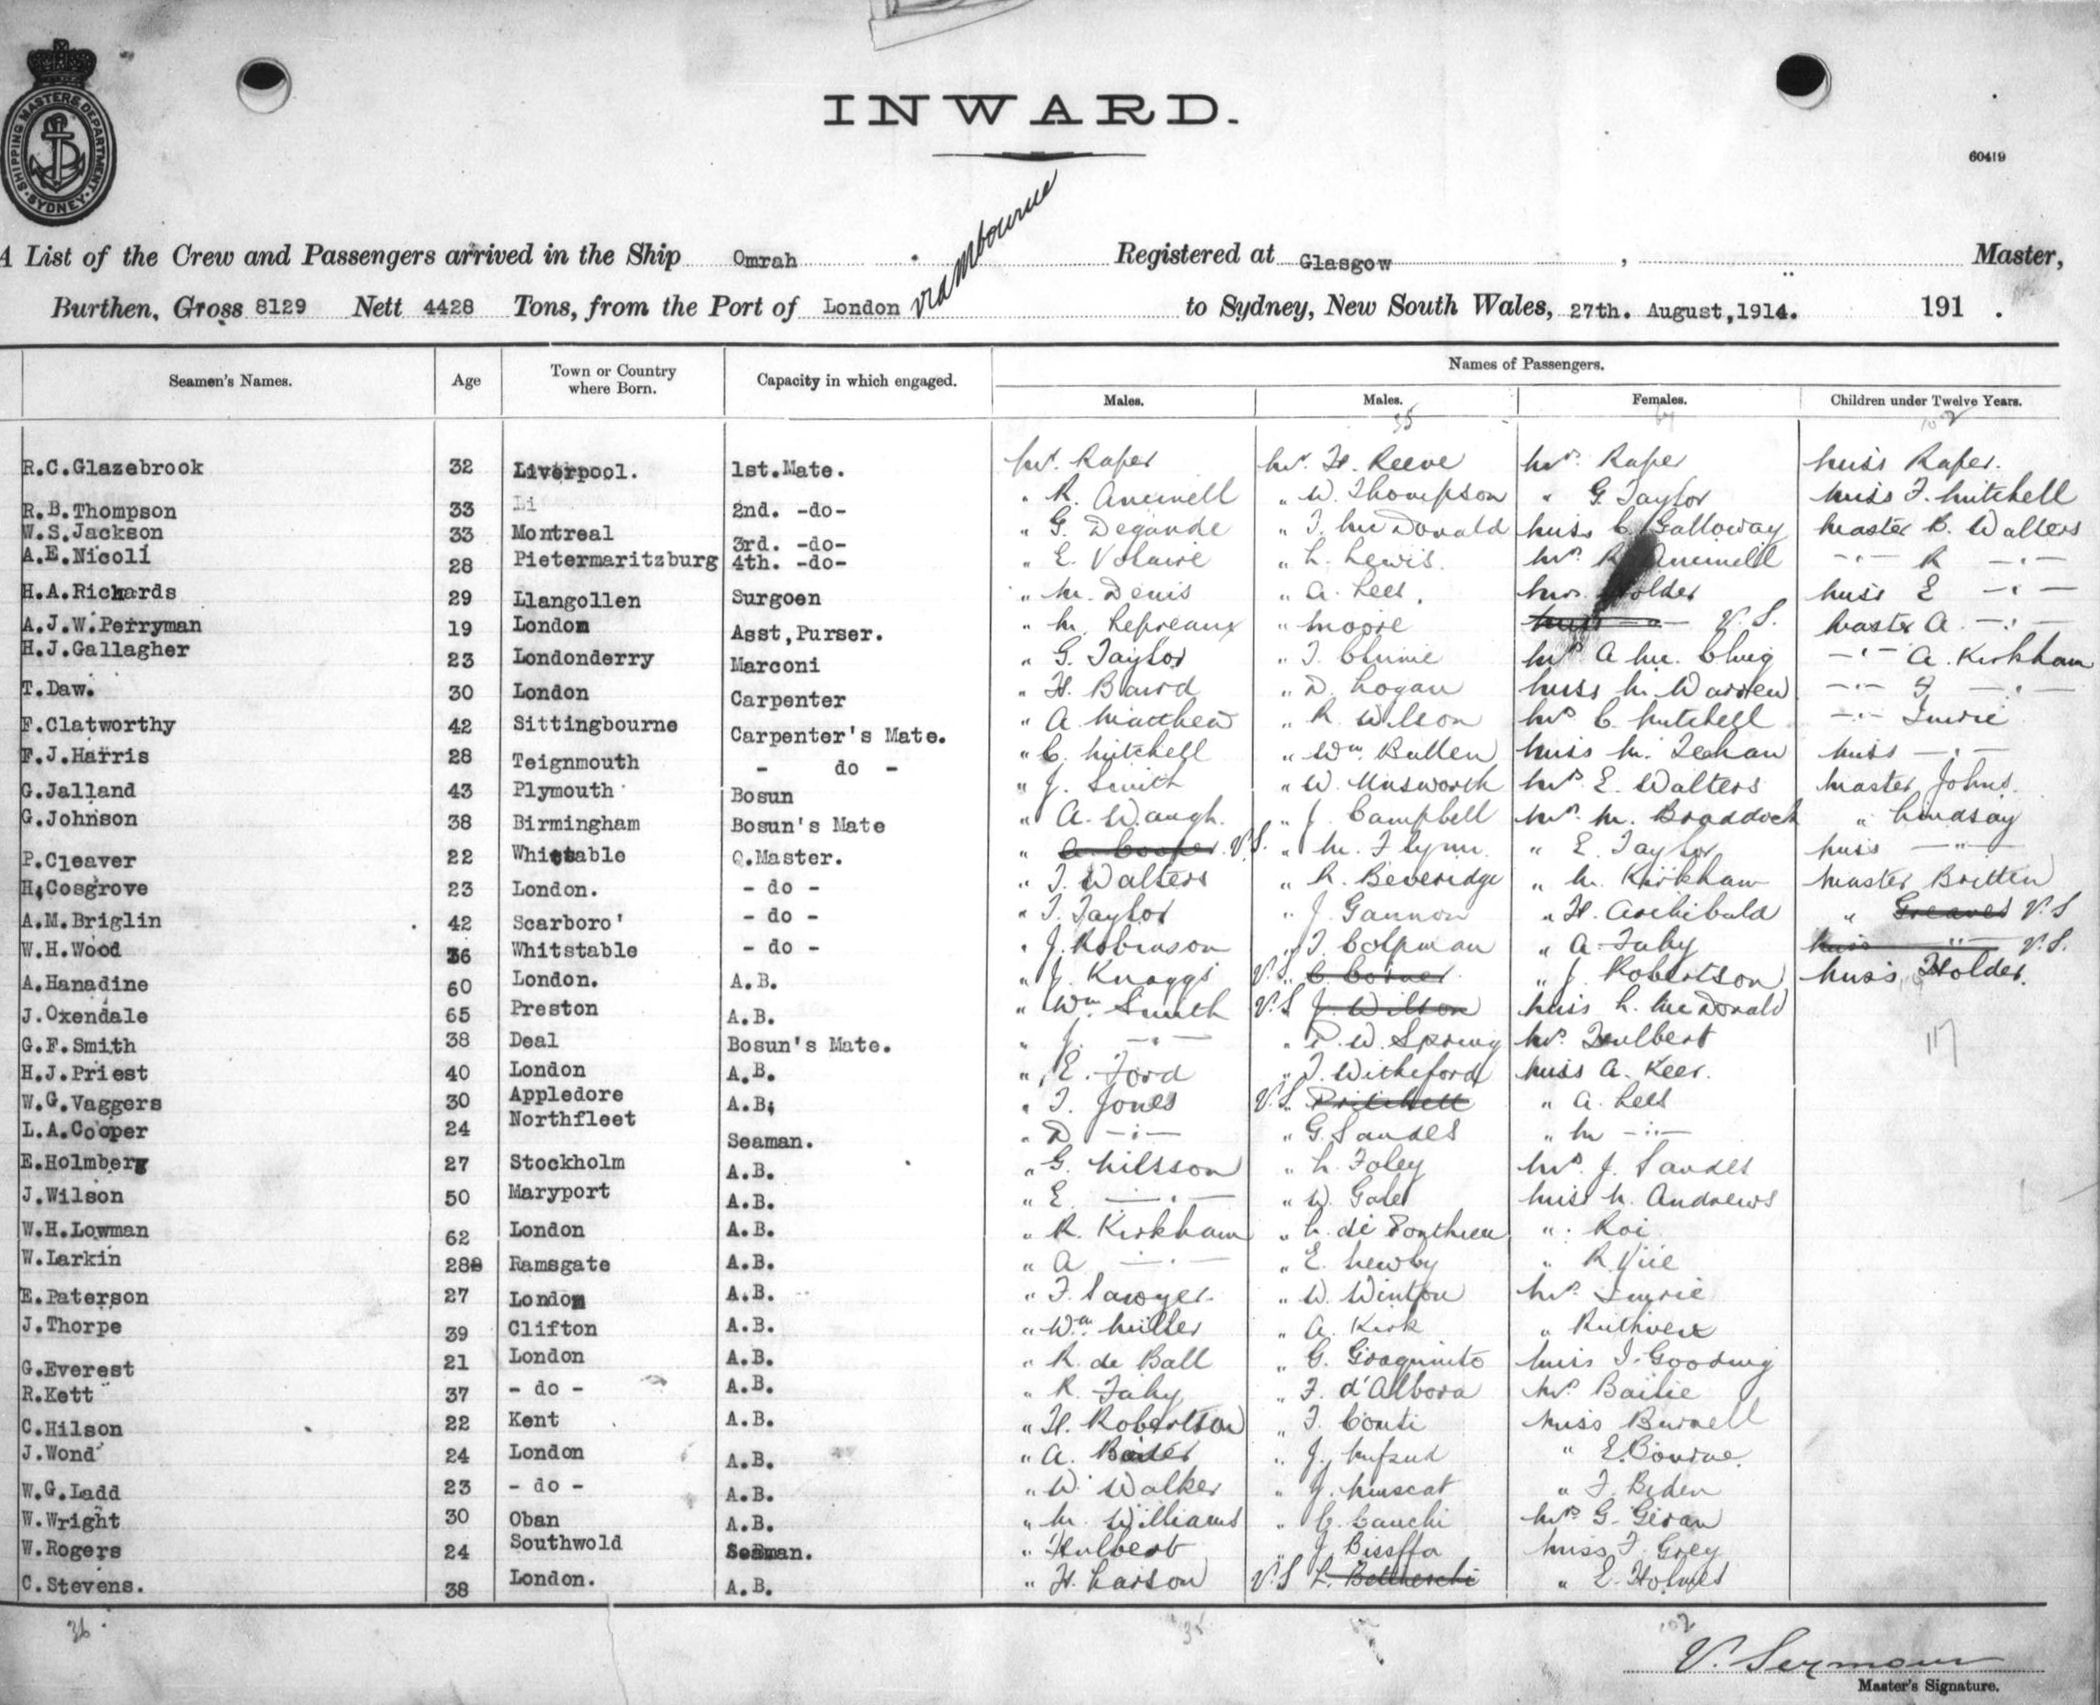 SHIPPING MASTERS DEPARTMENT
SYDNEY
INWARD.
60419
A List of the Crew and Passengers arrived in the Ship Omrah Registered at Glasgow, Master,
via Mbourne
Burthen, Gross 8129 Nett 4428 Tons, from the Port of London to Sydney, New South Wales, 27th. August, 1914. 191 .
Seamen's Names. Age Town or Country where Born. Capacity in which engaged. Names of Passengers.
Males. Males. Females. Children under Twelve Years.
R.C.Glazebrook 32 Liverpool. 1st.Mate. Mr. Raper Mr. H. Reeve Mrs. Raper Miss Raper.
R.B.Thompson 33 Li 2nd. -do- " R. " W. Thompson " G. Taylor Miss F. Mitchell
W.S.Jackson 33 Montreal 3rd. -do- " G. Degande " T. McDonald Miss C. Galloway Master B. Walters
A.E.Nicoli 28 Pietermaritzburg 4th. -do- " E. " L. Lewis. Mrs. R -"- R -"-
H.A.Richards 29 Llangollen Surgoen " M. Denis " A. Lees. Mrs. Holder Miss E -"-
A.J.W.Perryman 19 London Asst,Purser. " M. Repreaux " Moore Miss -"- V.S. Master A. -"-
H.J.Gallagher 23 Londonderry Marconi " G. Taylor " T. Mrs A Mc. Clung -"- A. Kirkham
T.Daw. 30 London Carpenter " H. Baird " D. Logan Miss M. Warren -"- F -"-
F.Clatworthy 42 Sittingbourne Carpenter's Mate. " A. Matthew " R. Wilson Mrs C. Mitchell -"- Imrie
F.J.Harris 28 Teignmouth - do - " C. Mitchell " Wm. Bullen Miss M. Teehan Miss -"-
G.Jalland 43 Plymouth Bosun " J. Smith " W. Unsworth Mrs. E. Walters Master Johns.
G.Johnson 38 Birmingham Bosun's Mate " A. Waugh. " J. Campbell Mrs. M. Braddock " Lindsay
P.Cleaver 22 Whitstable Q.Master. " A. Cooper V.S. " M. Flynn. " E. Taylor Miss -"-
H.Cosgrove 23 London. - do - " T. Walters " R. Beveridge " M. Kirkham Master Britten
A.M.Briglin 42 Scarboro' - do - " T. Taylor " J. Gannon " H. Archibald " Greaves V.S
W.H.Wood 36 Whitstable - do - " J. Robinson " T. Colpman " A. Fahy Miss -"- V.S.
A.Hanadine 60 London. A.B. " J. Knaggs V.S. C. Corner " J. Robertson Miss Holder.
J.Oxendale 65 Preston A.B. " Wm. Smith V.S J. Wilton Miss L. McDonald
G.F.Smith 38 Deal Bosun's Mate. " J. -"- " P. W. Spring Mrs. Hulbert 117
H.J.Priest 40 London A.B. " E. Ford " T. Witheford Miss A. Keer.
W.G.Vaggers 30 Appledore A.B. " T. Jones V.S. Pritchett " A. Lees
L.A.Cooper 24 Northfleet Seaman. " D -"- " G. Sandes " M -"-
E.Holmberg 27 Stockholm A.B. " G. Nilsson " L. Foley Mrs. J. Sandes
J.Wilson 50 Maryport A.B. " E. -"- " W. Gale Miss M. Andrews
W.H.Lowman 62 London A.B. " R. Kirkham " L. de Ponthieu " Roi
W.Larkin 28 Ramsgate A.B. " A -"- " E. Newby " R.
E.Paterson 27 London A.B. " F. Sawyer. " W. Winton Mrs. Imrie
J.Thorpe 39 Clifton A.B. " Wm. Miller " A. Kirk " Ruthven
G.Everest 21 London A.B. " R. de Ball " G. Giaquinto Miss I. Gooding
R.Kett 37 - do - A.B. " R. Fahy " F. d'Albora Mrs. Bailie
C.Hilson 22 Kent A.B. " H. Robertson " F. Conti Miss Burnell
J.Wond 24 London A.B. " A. " J. Mifsud " E. Bourne.
W.G.Ladd 23 - do - A.B. " W. Walker " J. Muscat " F. Biden
W.Wright 30 Oban A.B. " M. Williams " C. Cauchi Mrs G. Giran
W.Rogers 24 Southwold Seaman. " Hulbert " J. Miss F. Grey
C.Stevens. 38 London. A.B. " H. Larson V.S L. " E. Holmes
36 35 102
V. Seymour
Master's Signature.